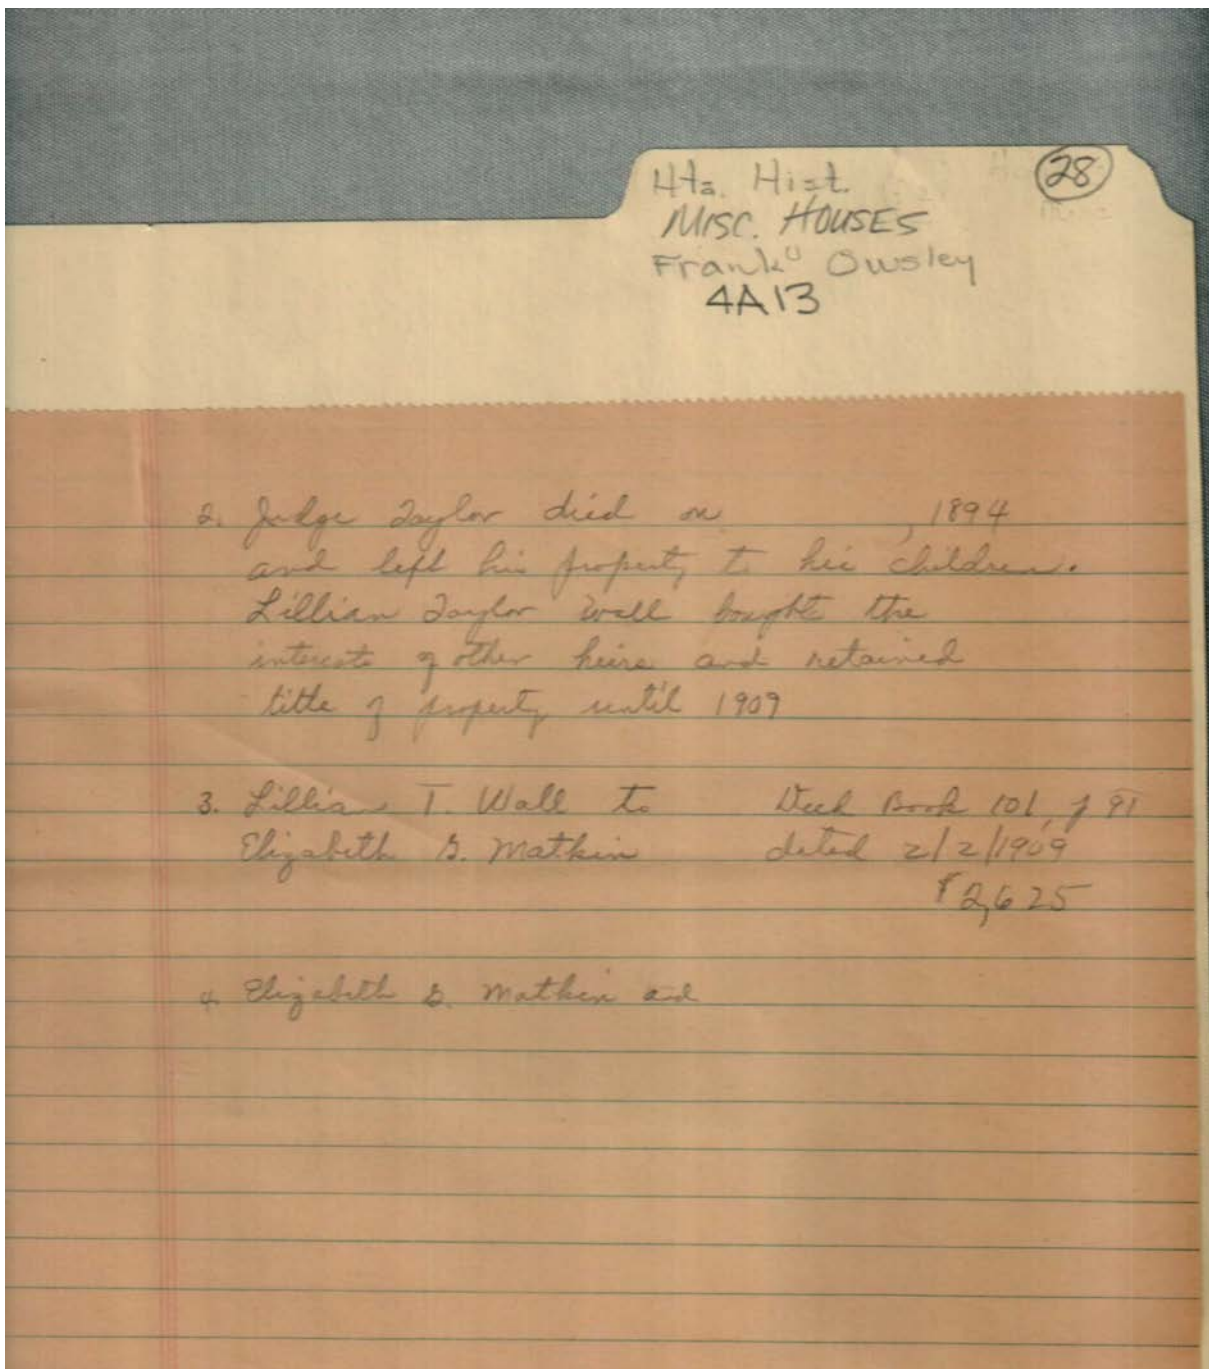 Hts. Hist.
28
MISC. HOUSES
Frank Owsley
4A13
2. Judge Taylor died on , 1894
and left his property to his children.
Lillian Taylor Wall bought the
interests of other heirs and retained
title of property until 1909
3. Lillian T. Wall to Deed Book 101, p 91
Elizabeth G. Matkin dated 2/2/1909
$2,625
4. Elizabeth G. Matkin and